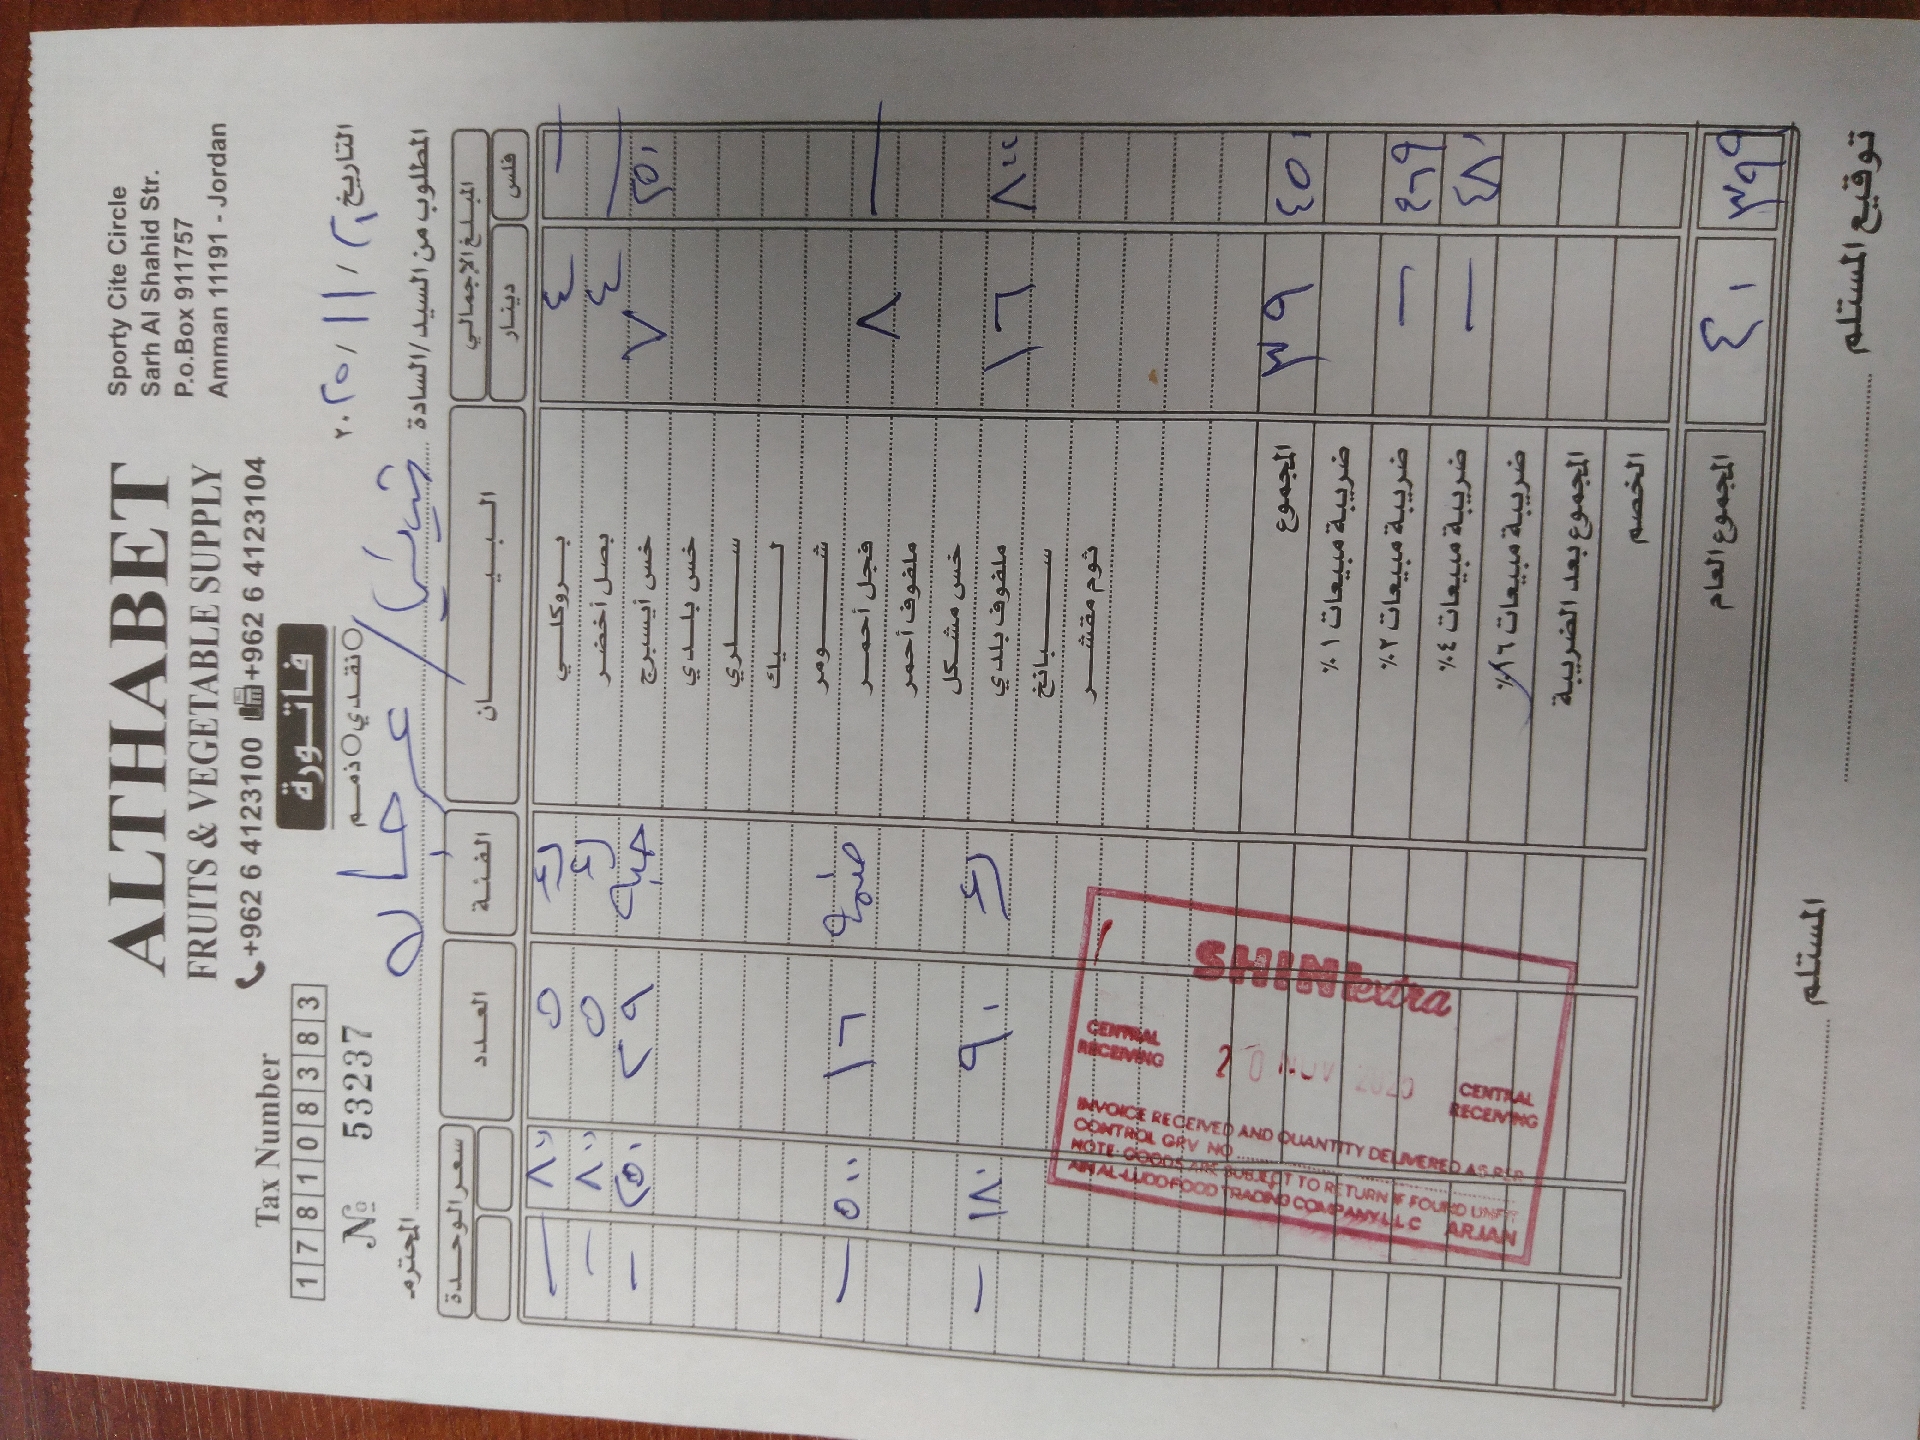 ALTHABET
FRUITS & VEGETABLE SUPPLY
+962 6 4123100 +962 6 4123104
Sporty Cite Circle
Sarh Al Shahid Str.
P.o.Box 911757
Amman 11191 - Jordan
Tax Number
178108383
№ 53237
فاتورة
نقدي ذمم
التاريخ ٢٠ / ١١ / ٢٠٢٥
المطلوب من السيد/السادة المحترم
المبلغ الإجمالي البيان الفئة العدد سعر الوحدة
فلس دينار
— ٤ بروكلي كغ ٥ ٨٠٠ —
— ٤ بصل أخضر كغ ٥ ٨٠٠ —
٢٥٠ ٧ خس أيسبرج حبة ٢٩ ٢٥٠ —
خس بلدي
سلري
ليك
شومر
— ٨ فجل أحمر ضمة ١٦ ٥٠٠ —
ملفوف أحمر
خس مشكل
٢٠٠ ١٦ ملفوف بلدي كغ ٩٠ ١٨٠ —
سبانخ
ثوم مقشر
٤٥٠ ٣٩ المجموع
ضريبة مبيعات ١٪
٤٦٩ — ضريبة مبيعات ٢٪
٤٨٠ — ضريبة مبيعات ٤٪
ضريبة مبيعات ١٦٪
المجموع بعد الضريبة
الخصم
٣٩٩ ٤٠ المجموع العام
توقيع المستلم
المستلم
SHINI extra
CENTRAL RECEIVING
20 NOV 2025
CENTRAL RECEIVING
INVOICE RECEIVED AND QUANTITY DELIVERED AS PER
CONTROL GRV NO
NOTE: GOODS ARE SUBJECT TO RETURN IF FOUND UNFIT
AIN AL-LUDD FOOD TRADING COMPANY L.L.C ARJAN